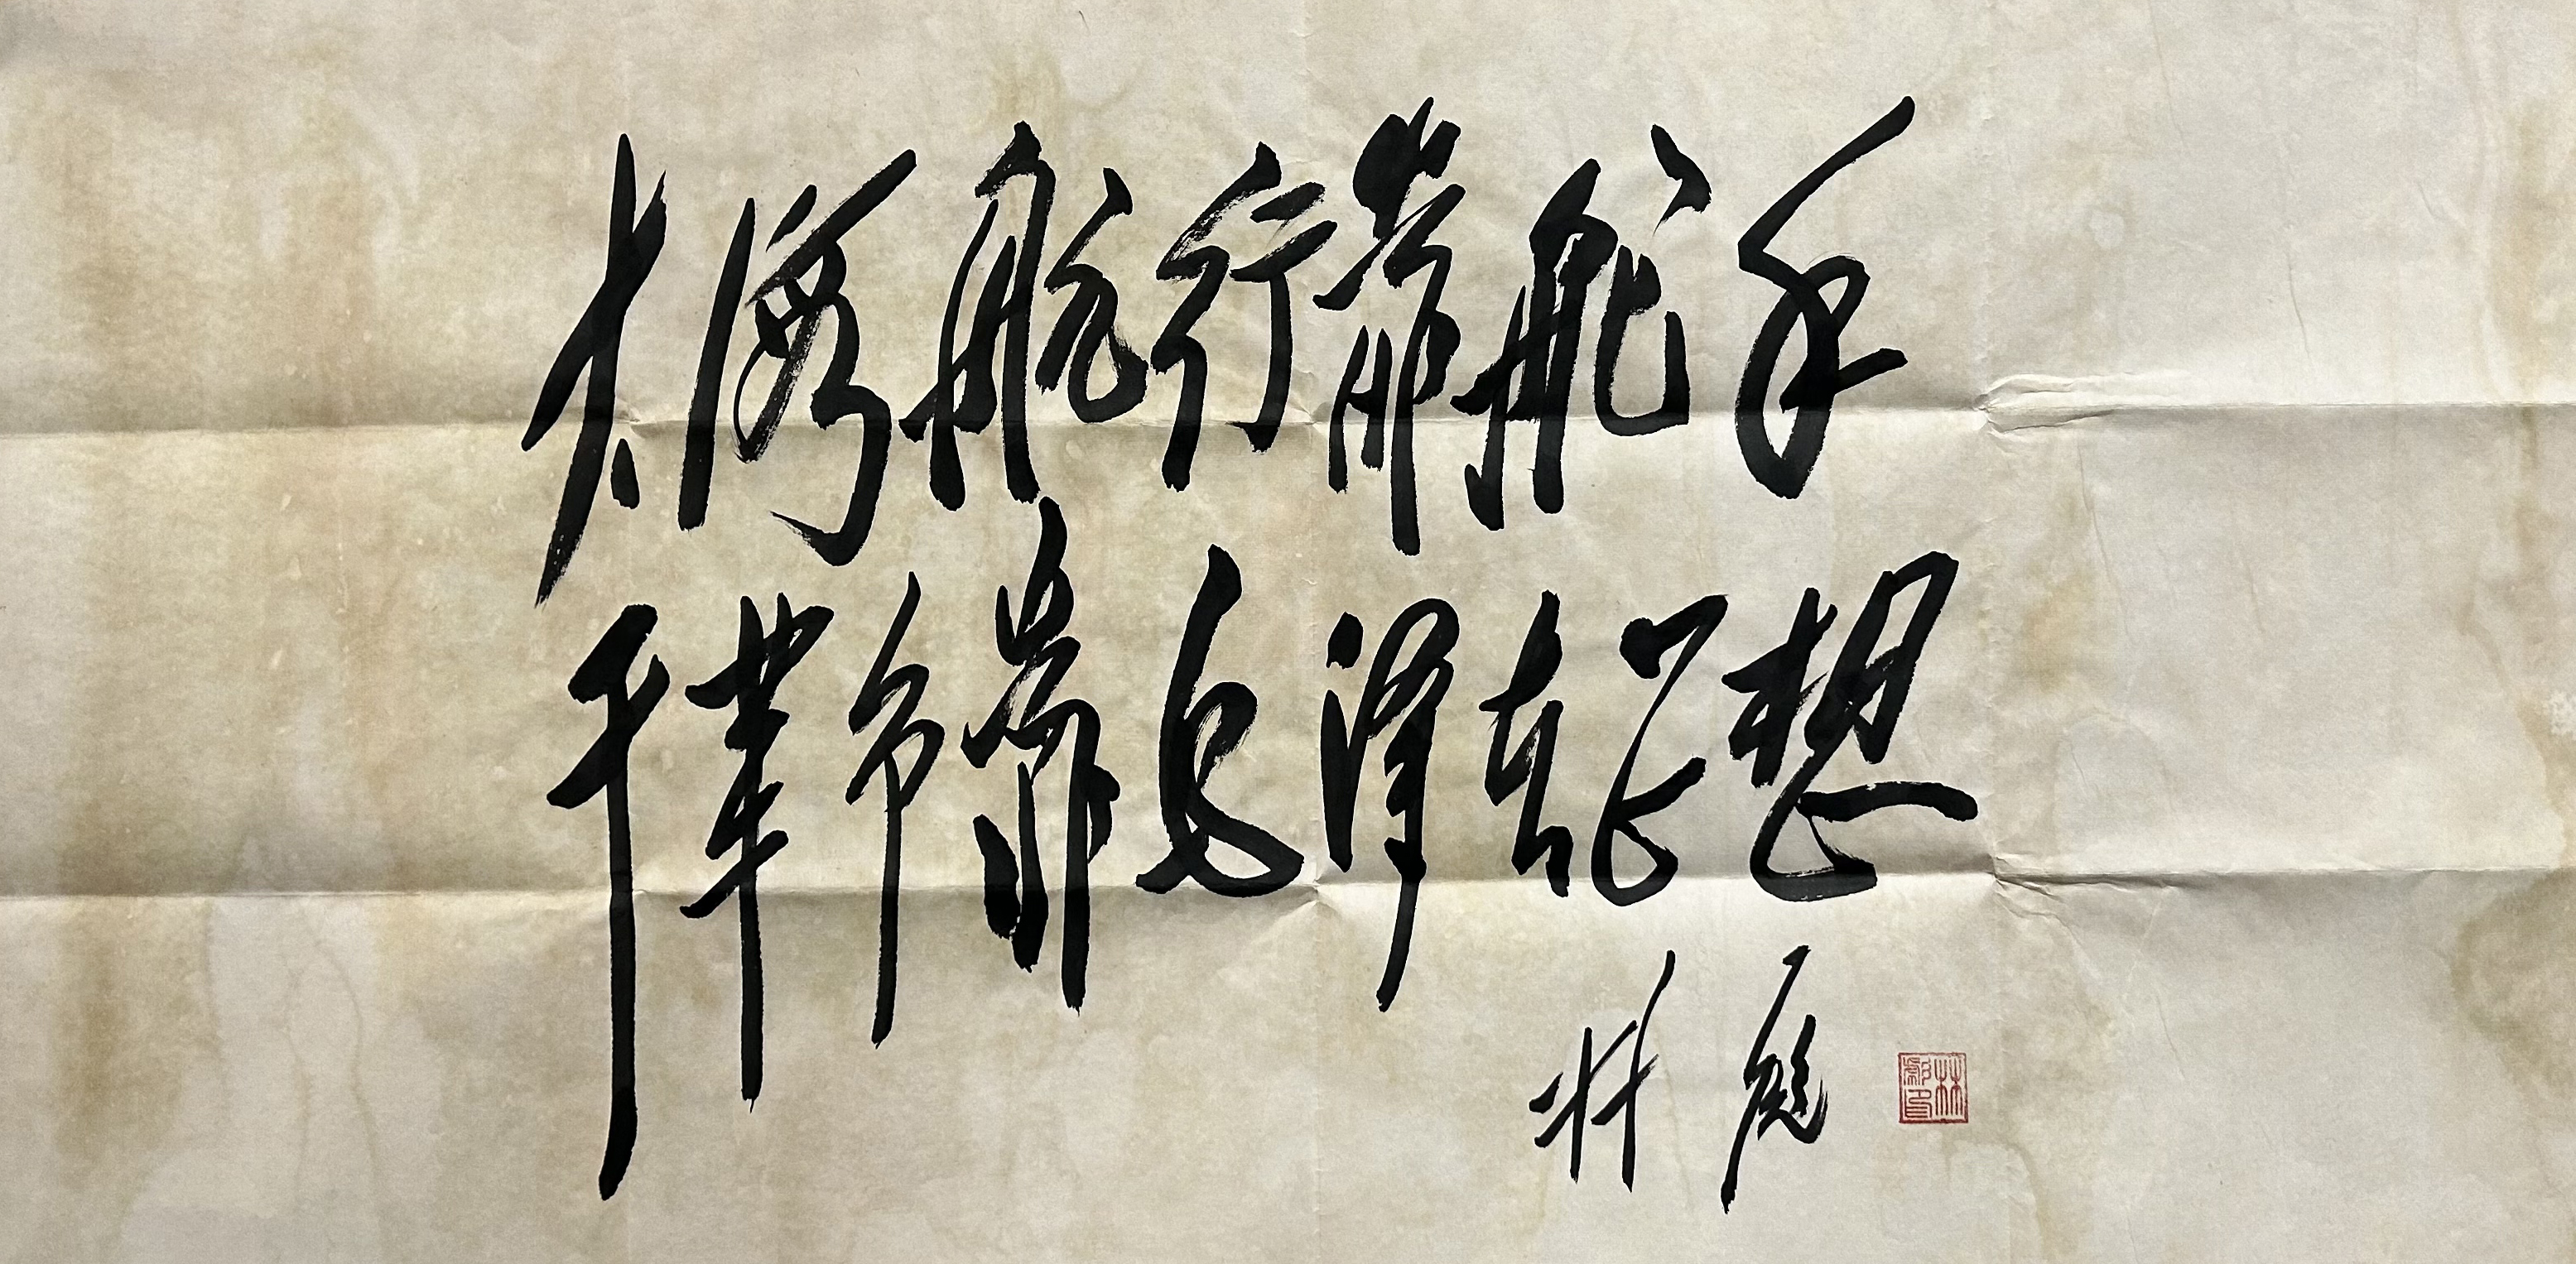 大海航行靠舵手
干革命靠毛泽东思想
林彪
林彪印